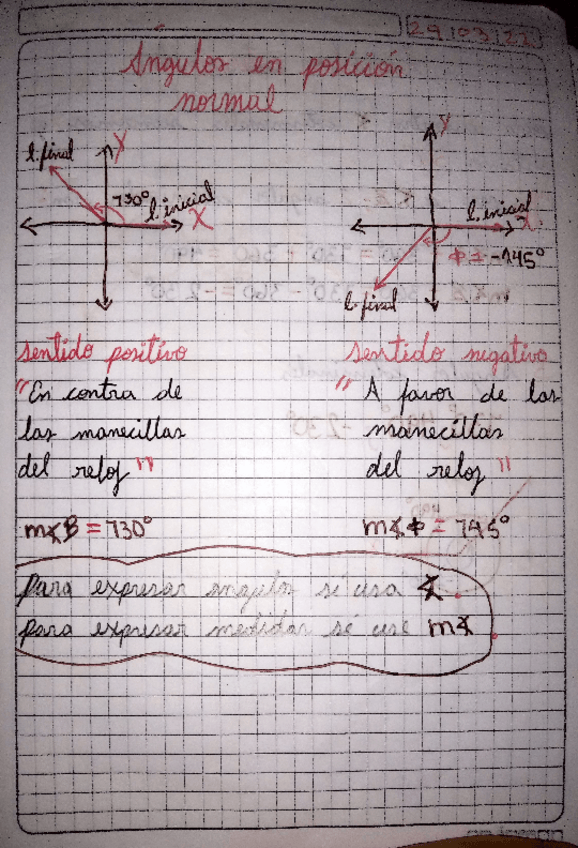 29/03/22
Angulos en posición
normal
Y
l. final
130°
l. inicial
X
Y
l. inicial
X
ϕ = -145°
l. final
sentido positivo
"En contra de
las manecillas
del reloj"
m∡B = 130°
sentido negativo
"A favor de las
manecillas
del reloj"
m∡ϕ = 145°
para expresar angulo se usa ∡.
para expresar medidas se use m∡.